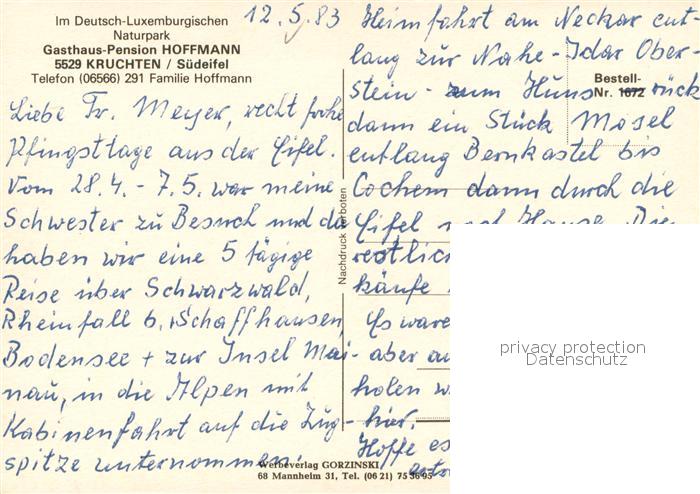 Im Deutsch-Luxemburgischen
Naturpark
Gasthaus-Pension HOFFMANN
5529 KRUCHTEN / Südeifel
Telefon (06566) 291 Familie Hoffmann
12.5.83
Liebe Fr. Meyer, recht frohe
Pfingsttage aus der Eifel.
Vom 28.4. - 7.5. war meine
Schwester zu Besuch und da
haben wir eine 5 tägige
Reise über Schwarzwald,
Rheinfall b. Schaffhausen,
Bodensee + zur Insel Mai-
nau, in die Alpen mit
Kabinenfahrt auf die Zug-
spitze unternommen.
Heimfahrt am Neckar ent-
lang zur Nahe - Idar Ober-
stein - zum Hunsrück
dann ein Stück Mosel
entlang Bernkastel bis
Cochem dann durch die
Eifel nach Hause. Die
restlich
käufe
Es ware
aber au
holen w
hier.
Hoffe es
Bestell-
Nr. 1672
Nachdruck verboten
Werbeverlag GORZINSKI
68 Mannheim 31, Tel. (06 21) 75 36 95
privacy protection
Datenschutz